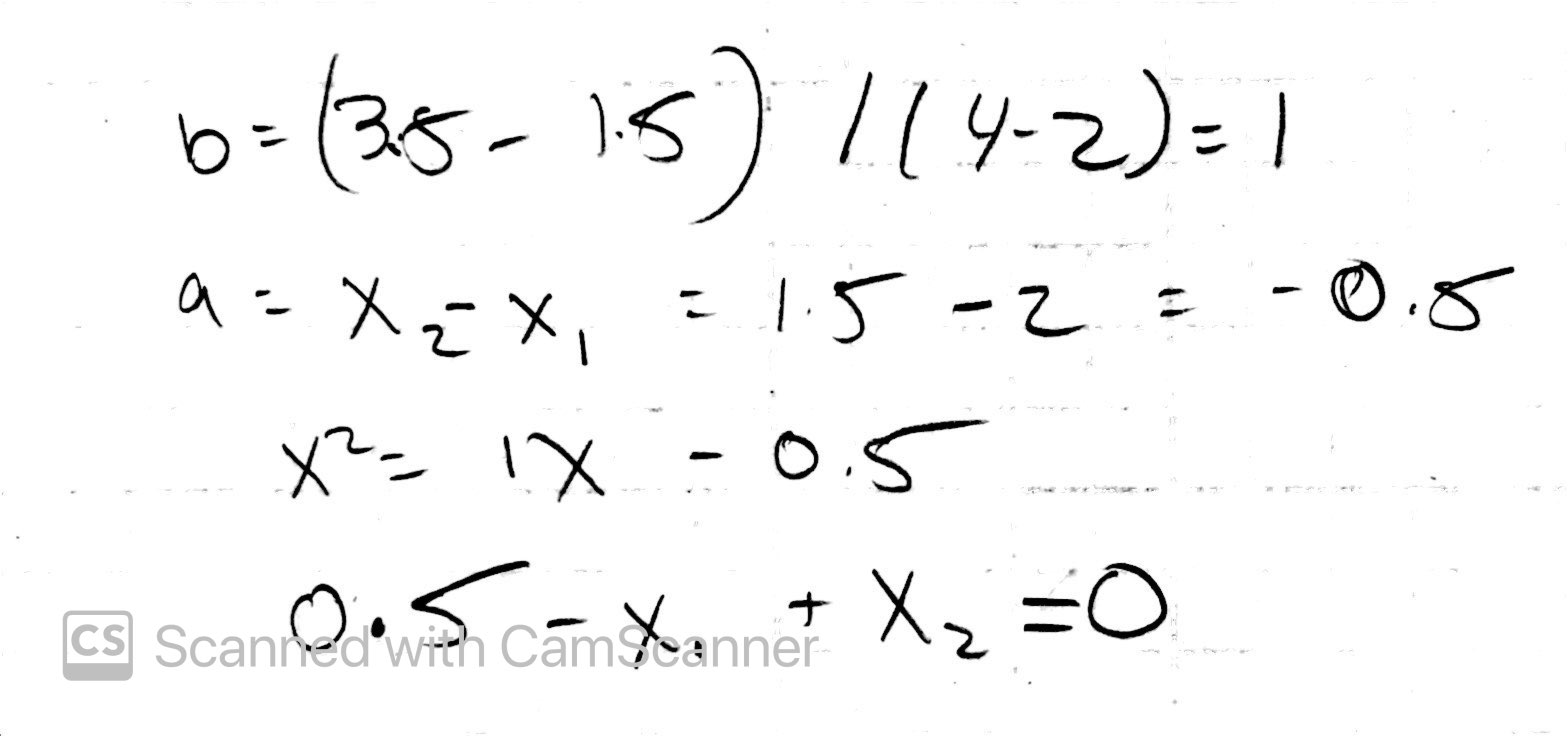 b = (3.5 - 1.5) / (4-2) = 1
a = x₂ - x₁ = 1.5 - 2 = -0.5
x² = 1x - 0.5
0.5 - x₁ + x₂ = 0
CS Scanned with CamScanner